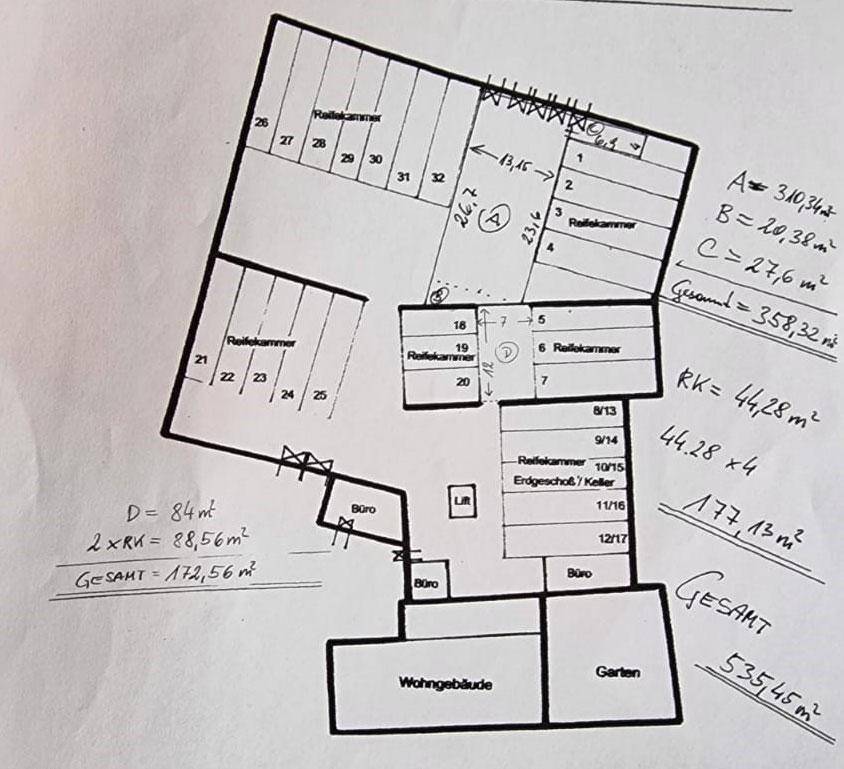 26
27
28
29
30
31
32
Reifekammer
13,15
26,7
A
23,6
C
6,9
1
2
3
4
Reifekammer
B
21
22
23
24
25
Reifekammer
18
19
Reifekammer
20
7
D
12
5
6 Reifekammer
7
8/13
9/14
Reifekammer 10/15
Erdgeschoß / Keller
11/16
12/17
Lift
Büro
Büro
Büro
Wohngebäude
Garten
A = 310,34 m²
B = 20,38 m²
C = 27,6 m²
Gesamt = 358,32 m²
RK = 44,28 m²
44.28 x 4
177,13 m²
GESAMT
535,45 m²
D = 84 m²
2 x RK = 88,56 m²
GESAMT = 172,56 m²